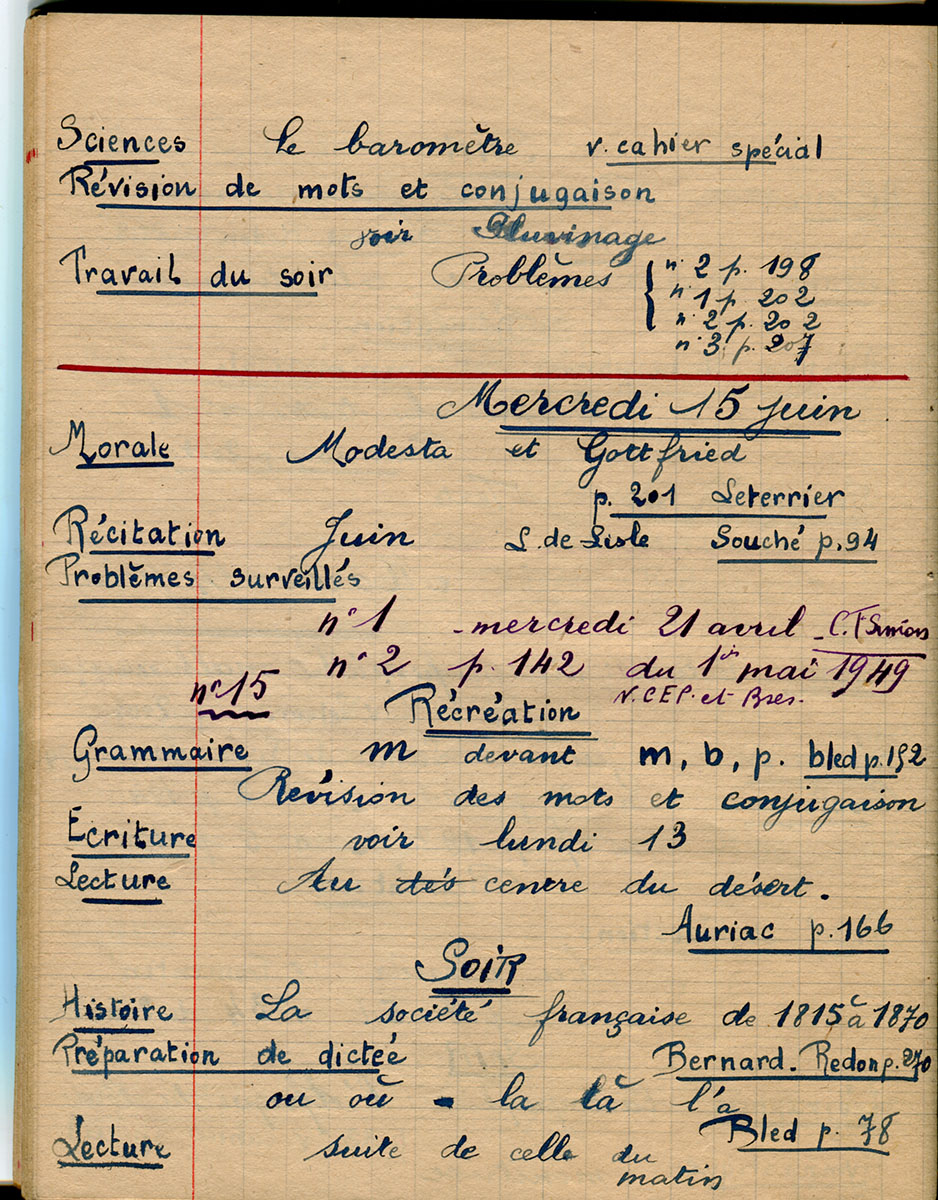 Sciences Le baromètre v. cahier spécial
Révision de mots et conjugaison
voir Pluvinage
Travail du soir Problèmes { n° 2 p. 198
n° 1 p. 202
n° 2 p. 202
n° 3 p. 207
Mercredi 15 juin
Morale Modesta et Gottfried
p. 201 Leterrier
Récitation Juin L. de Lisle Souché p. 94
Problèmes surveillés
n° 1 - mercredi 21 avril
n° 2 p. 142 du 1er mai 1949
n° 15 V. CEP. et
Récréation
Grammaire m devant m, b, p. bled p. 152
Révision des mots et conjugaison
Ecriture voir lundi 13
Lecture Au dés centre du désert.
Auriac p. 166
Soir
Histoire La société française de 1815 à 1870
Préparation de dicteé Bernard. Redon p. 270
ou où - la là l'a
Bled p. 78
Lecture suite de celle du
matin